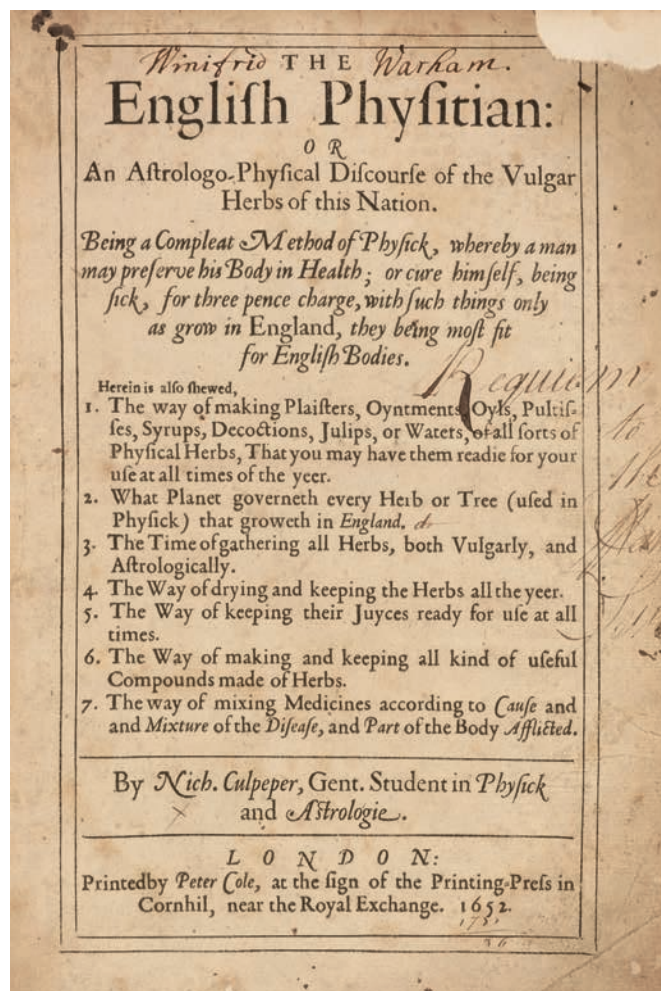 Winifrid THE Warham.
Engliſh Phyſitian:
OR
An Aſtrologo-Phyſical Diſcourſe of the Vulgar
Herbs of this Nation.
Being a Compleat Method of Phyſick, whereby a man
may preſerve his Body in Health; or cure himſelf, being
ſick, for three pence charge, with ſuch things only
as grow in England, they being moſt fit
for Engliſh Bodies.
Requiem
Herein is alſo ſhewed,
1. The way of making Plaiſters, Oyntments, Oyls, Pultiſ-
ſes, Syrups, Decoctions, Julips, or Waters, of all ſorts of
Phyſical Herbs, That you may have them readie for your
uſe at all times of the yeer.
to
the
2. What Planet governeth every Herb or Tree (uſed in
Phyſick) that groweth in England. &
3. The Time of gathering all Herbs, both Vulgarly, and
Aſtrologically.
4. The Way of drying and keeping the Herbs all the yeer.
5. The Way of keeping their Juyces ready for uſe at all
times.
6. The Way of making and keeping all kind of uſeful
Compounds made of Herbs.
7. The way of mixing Medicines according to Cauſe and
and Mixture of the Diſeaſe, and Part of the Body Afflicted.
By Nich. Culpeper, Gent. Student in Phyſick
and Aſtrologie.
LONDON:
Printed by Peter Cole, at the ſign of the Printing-Preſs in
Cornhil, near the Royal Exchange. 1652.